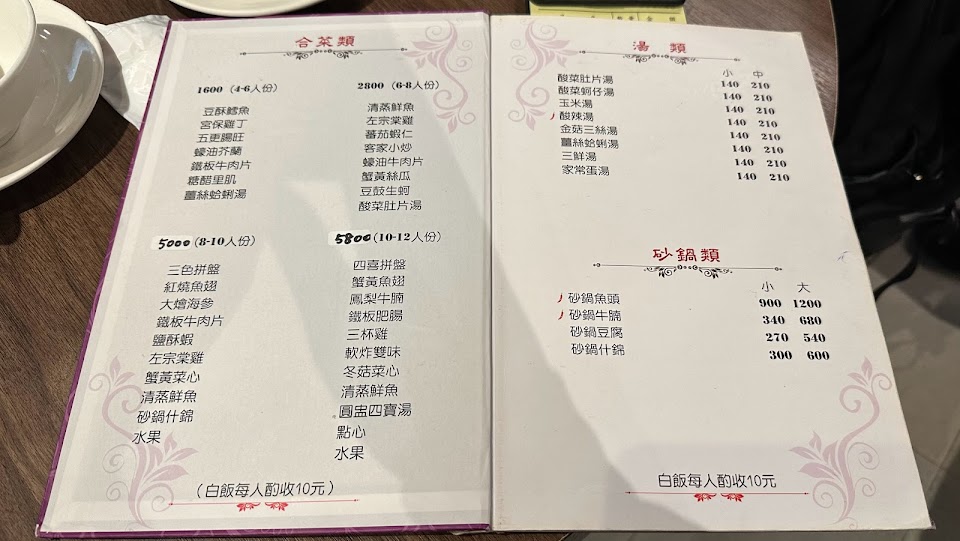 合菜類
1600 (4-6人份)
豆酥鱈魚
宮保雞丁
五更腸旺
蠔油芥蘭
鐵板牛肉片
糖醋里肌
薑絲蛤蜊湯
2800 (6-8人份)
清蒸鮮魚
左宗棠雞
蕃茄蝦仁
客家小炒
蠔油牛肉片
蟹黃絲瓜
豆鼓生蚵
酸菜肚片湯
5000 (8-10人份)
三色拼盤
紅燒魚翅
大燴海參
鐵板牛肉片
鹽酥蝦
左宗棠雞
蟹黃菜心
清蒸鮮魚
砂鍋什錦
水果
5800 (10-12人份)
四喜拼盤
蟹黃魚翅
鳳梨牛腩
鐵板肥腸
三杯雞
軟炸雙味
冬菇菜心
清蒸鮮魚
圓盅四寶湯
點心
水果
(白飯每人酌收10元)
湯 類
小 中
酸菜肚片湯 140 210
酸菜蚵仔湯 140 210
玉米湯 140 210
酸辣湯 140 210
金菇三絲湯 140 210
薑絲蛤蜊湯 140 210
三鮮湯 140 210
家常蛋湯 140 210
砂鍋類
小 大
砂鍋魚頭 900 1200
砂鍋牛腩 340 680
砂鍋豆腐 270 540
砂鍋什錦 300 600
白飯每人酌收10元